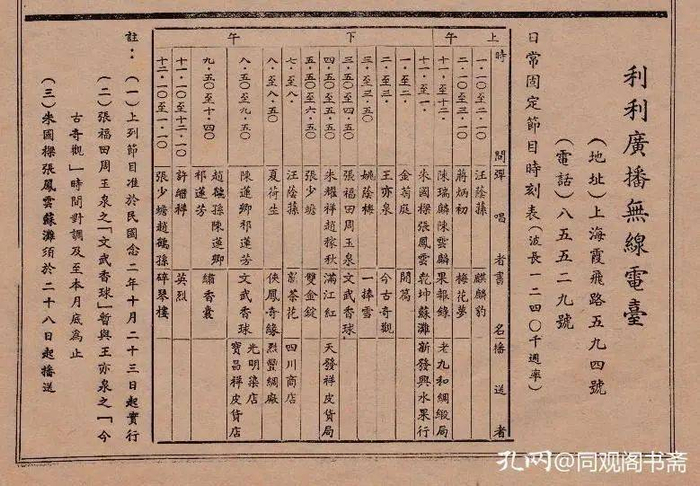 利利廣播無線電臺
（地址）上海霞飛路五九四號
（電話）八五五二九號
日常固定節目時刻表（波長一二四〇千週率）
上午 下午
時間 彈唱者 書名 播送者
一·一〇至二·一〇 汪蔭蓀 麒麟豹
二·一〇至三·一〇 蔣炳初 梅花夢
十一·一〇至十二· 陳瑞麟陳雲麟 果報錄 老九和綢緞局
十二·一〇至一· 朱國樑張鳳雲 乾坤蘇灘 新發興水果行
一·至二· 金菊庭 開篇
二·至三· 王亦泉 今古奇觀
三·至三·五〇 姚蔭梅 一捧雪
三·五〇至四·五〇 張福田周玉泉 文武香球
四·五〇至五·五〇 朱耀祥趙稼秋 滿江紅 天發祥皮貨局
五·五〇至六·五〇 張少蟾 雙金錠
七·至八· 汪蔭蓀 茶花 四川商店
八·至八·五〇 夏荷生 俠鳳奇緣 烈豐綢廠
八·五〇至九·五〇 陳蓮卿祁蓮芳 文武香球 光明染店 寶昌祥皮貨店
九·五〇至十·四〇 趙鶴孫陳蓮卿祁蓮芳 繡香囊
十一·一〇至十二·一〇 許繼祥 英烈
十二·一〇至一·一〇 張少蟾趙鶴孫 碎琴樓
註：（一）上列節目准於民國念二年十月二十三日起實行
（二）張福田周玉泉之「文武香球」暫與王亦泉之「今
古奇觀」時間對調及至本月底為止
（三）朱國樑張鳳雲蘇灘須於二十八日起播送
孔网@同观阁书斋